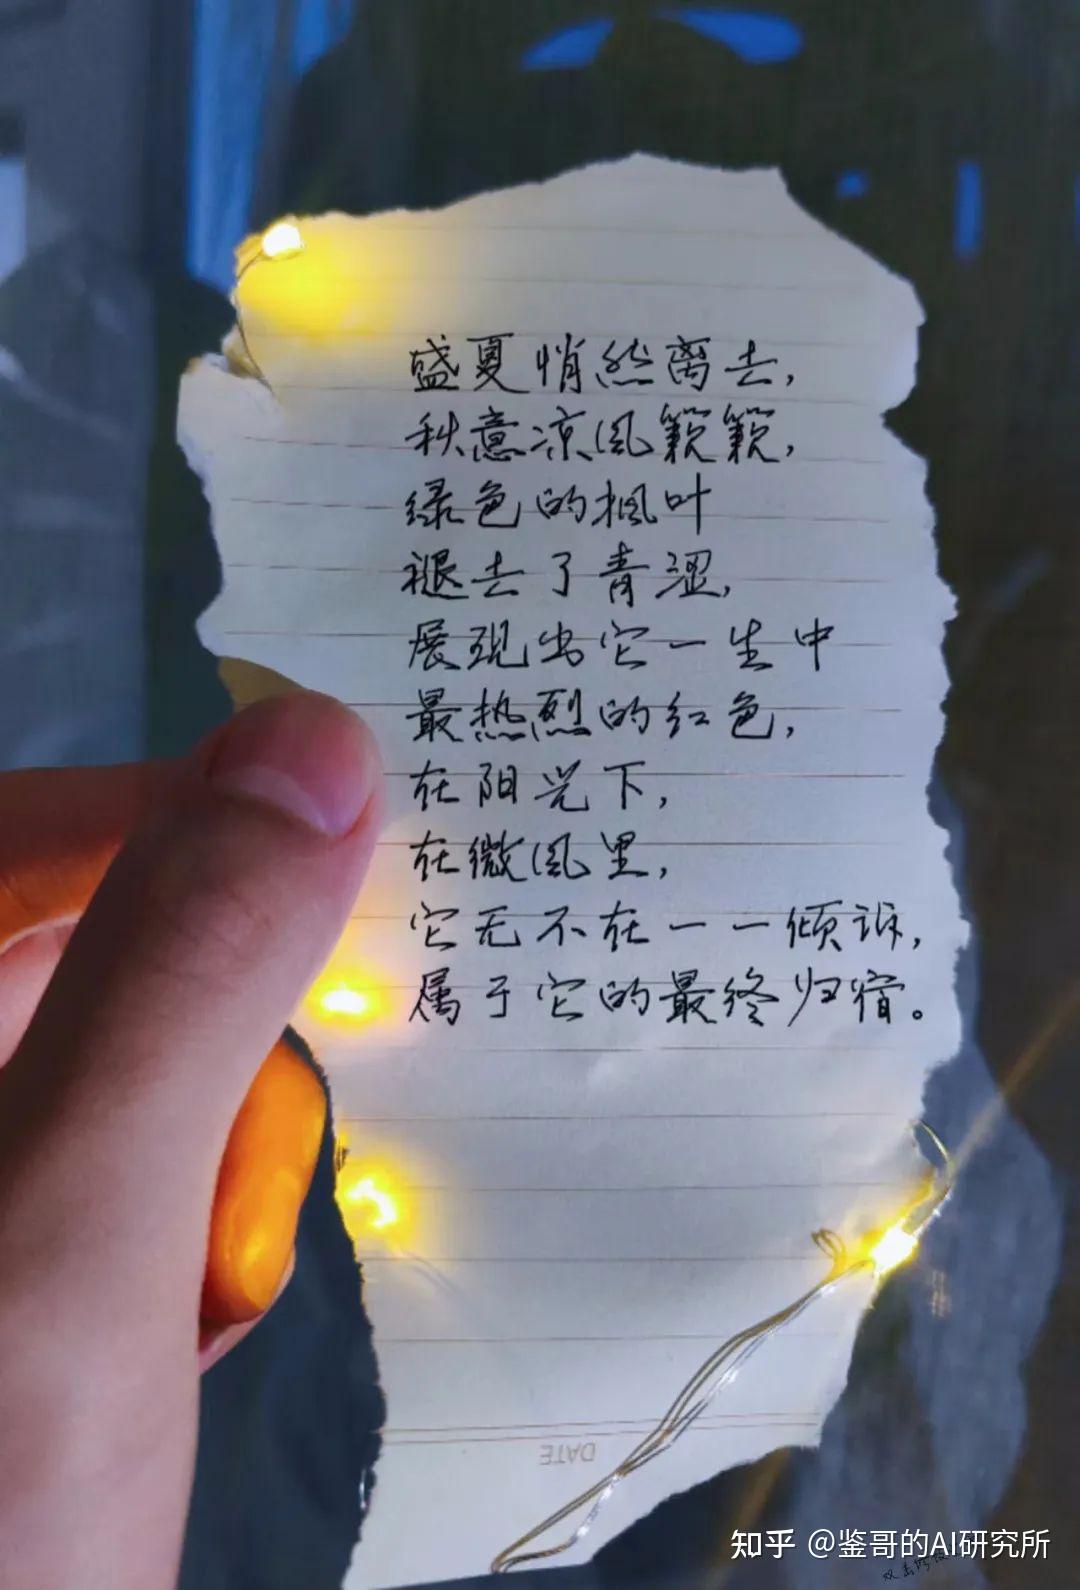 盛夏悄然离去,
秋意凉风簌簌,
绿色的枫叶
褪去了青涩,
展现出它一生中
最热烈的红色,
在阳光下,
在微风里,
它无不在一一倾诉,
属于它的最终归宿。
DATE
知乎 @鉴哥的AI研究所